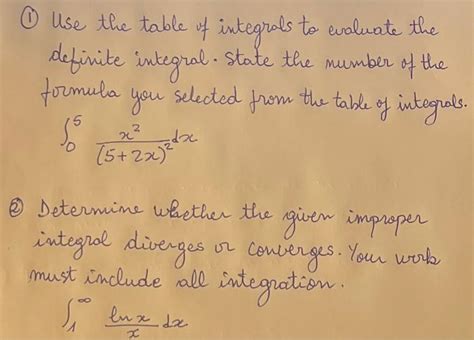 ① Use the table of integrals to evaluate the
definite integral. State the number of the
formula you selected from the table of integrals.
∫₀⁵ x²/(5+2x)² dx
② Determine whether the given improper
integral diverges or converges. Your work
must include all integration.
∫₁^∞ ln x/x dx